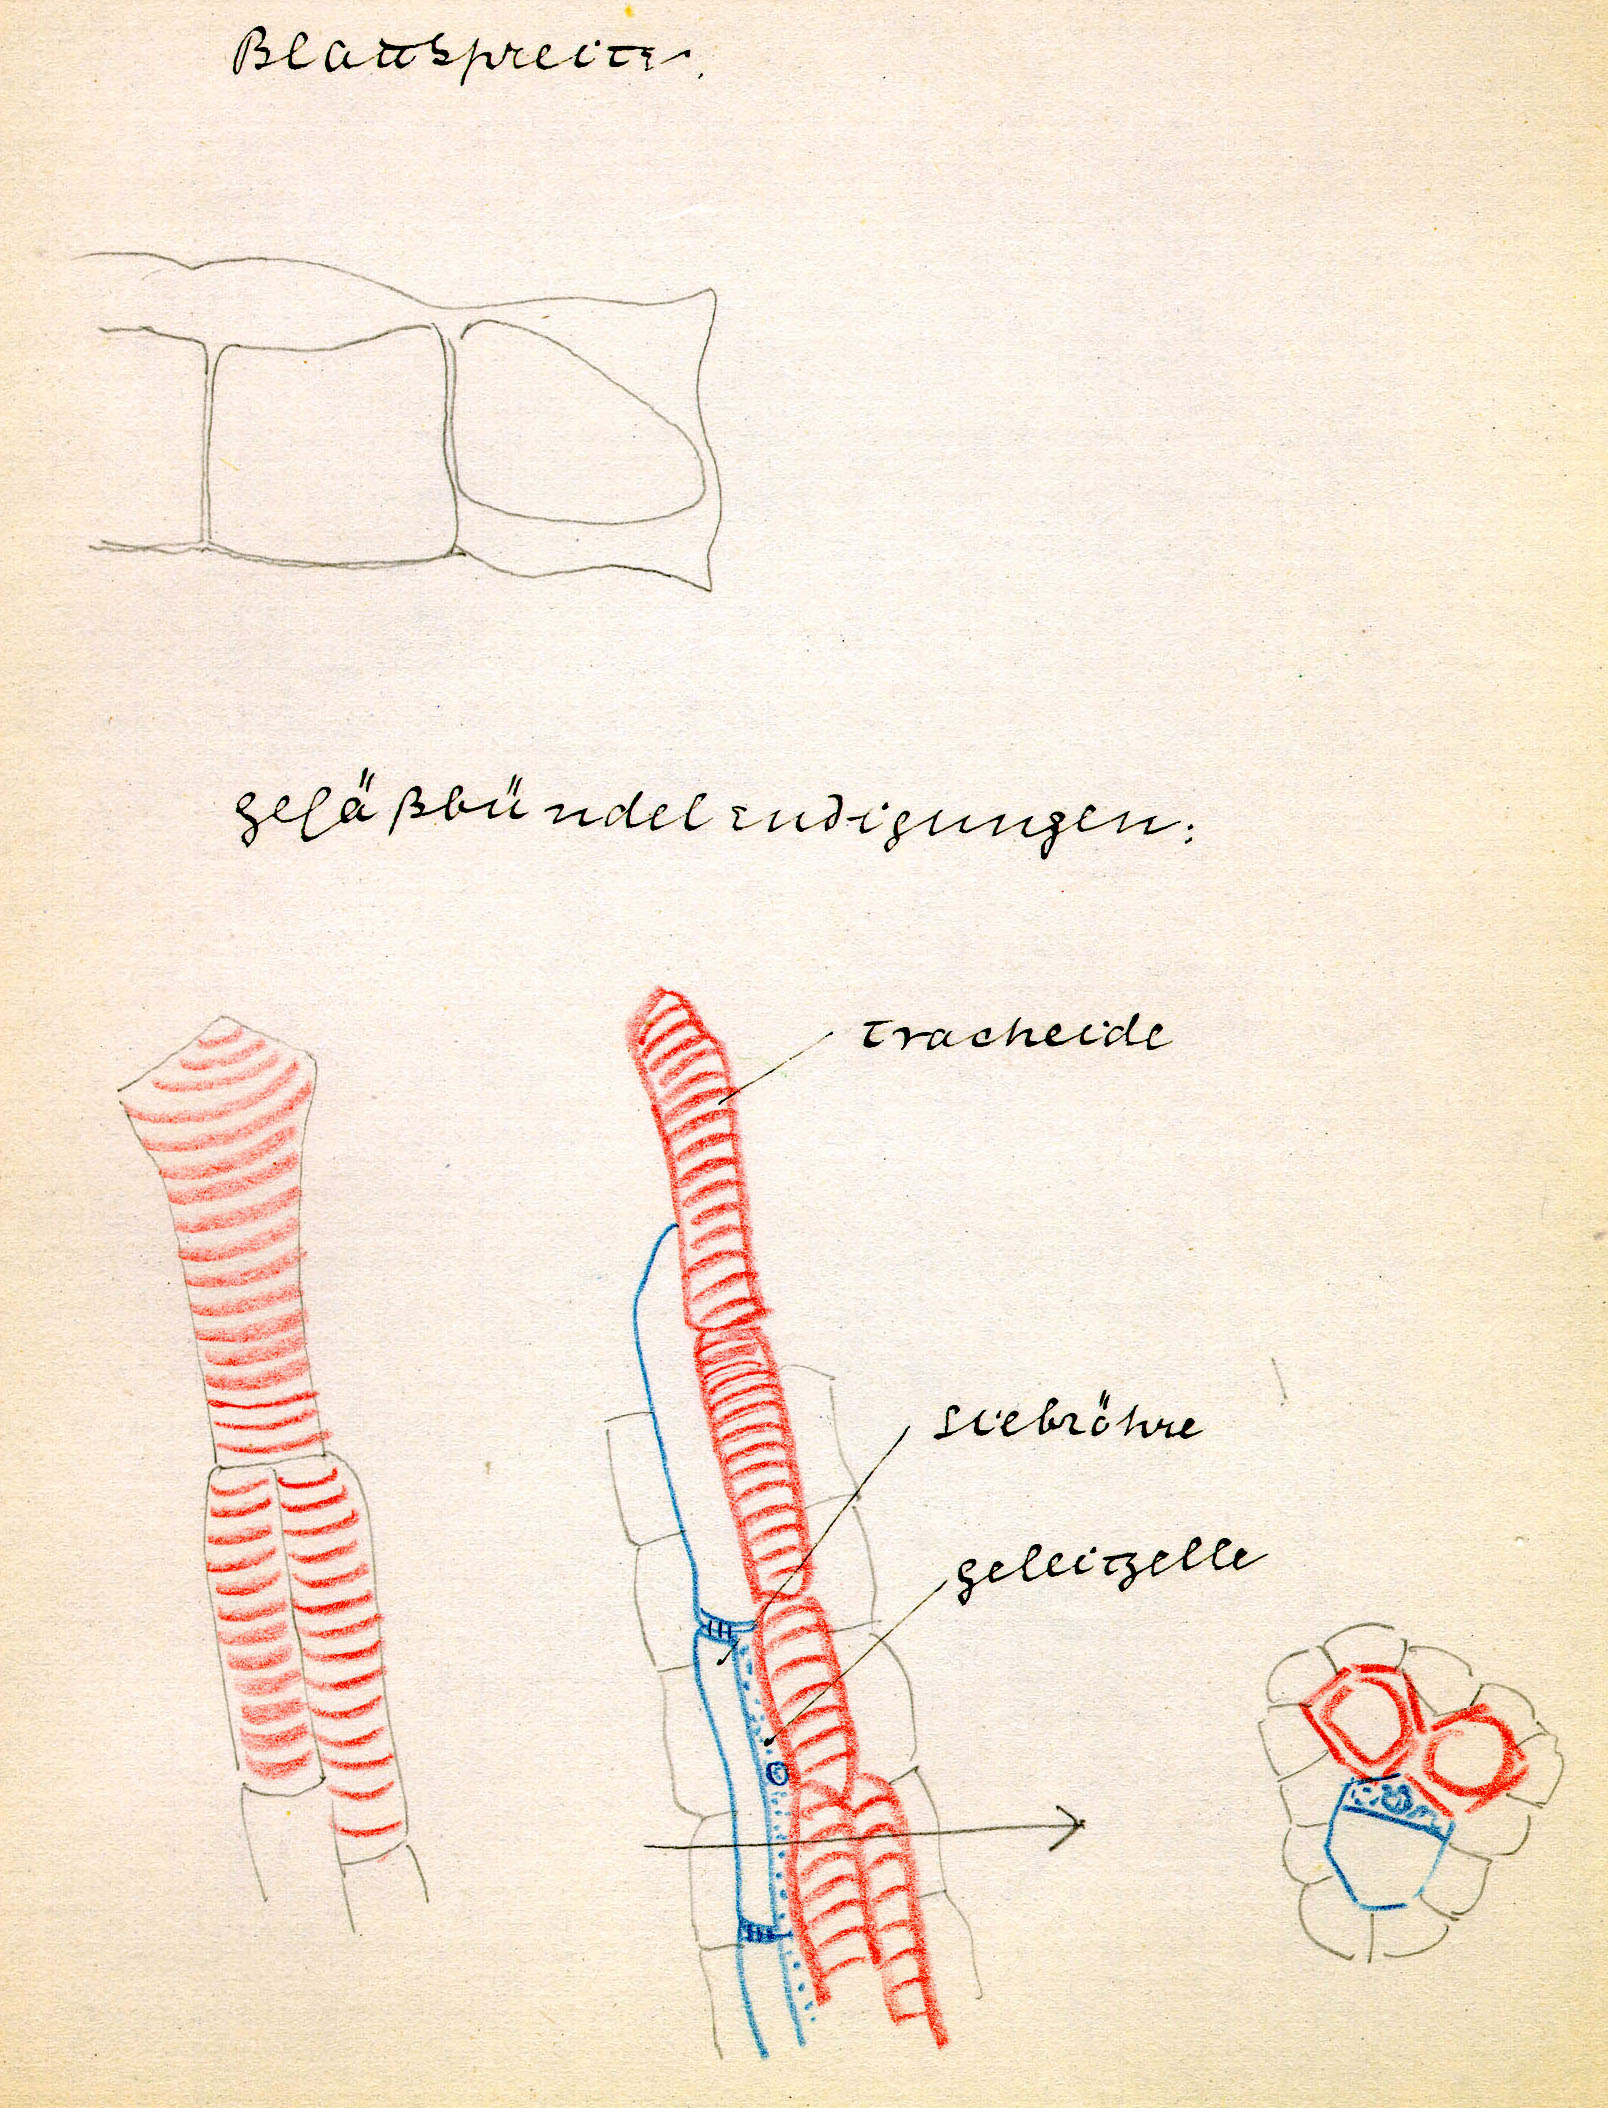 Blattspreite.
Gefäßbündelendigungen:
Tracheide
Siebröhre
Geleitzelle